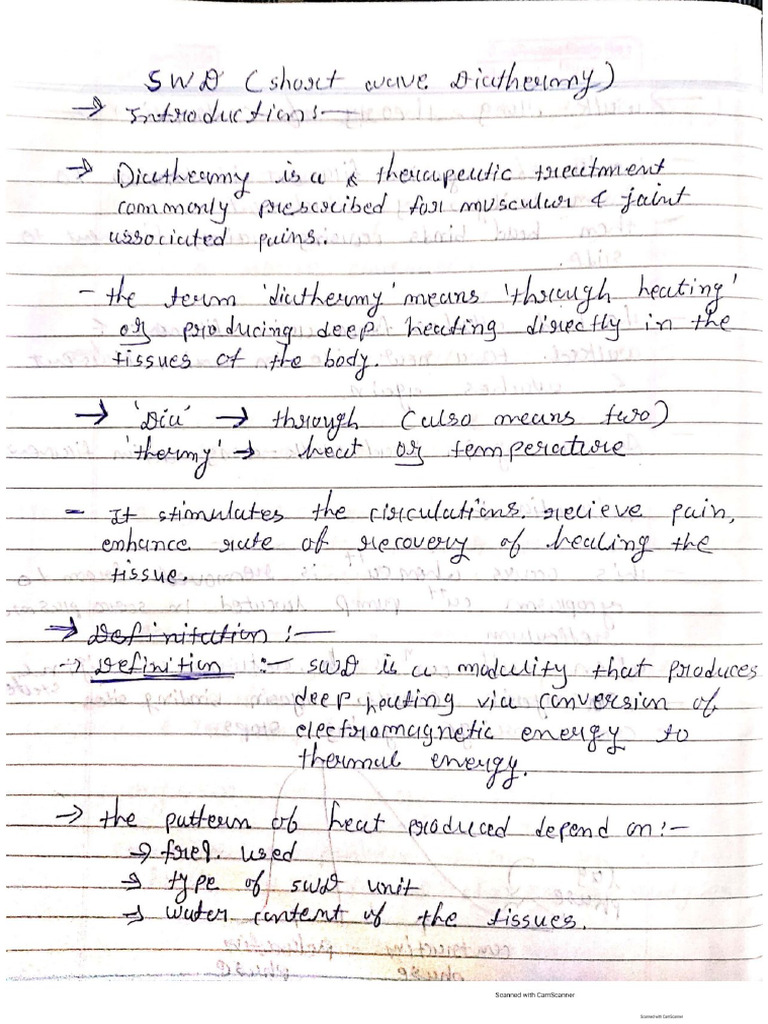 SWD (short wave Diathermy)
→ Introduction:—
→ Diathermy is a therapeutic treatment
commonly prescribed for muscular & joint
associated pains.
- the term 'diathermy' means 'through heating'
or producing deep heating directly in the
tissues of the body.
→ 'Dia' → through (also means two)
'thermy' → heat or temperature
- It stimulates the circulations, relieve pain,
enhance rate of recovery of healing the
tissue.
→ Definitation :—
→ Definition :- SWD is a modality that produces
deep heating via conversion of
electromagnetic energy to
thermal energy.
→ the pattern of heat produced depend on:-
→ freq. used
→ type of SWD unit
→ water content of the tissues.
Scanned with CamScanner
Scanned with CamScanner